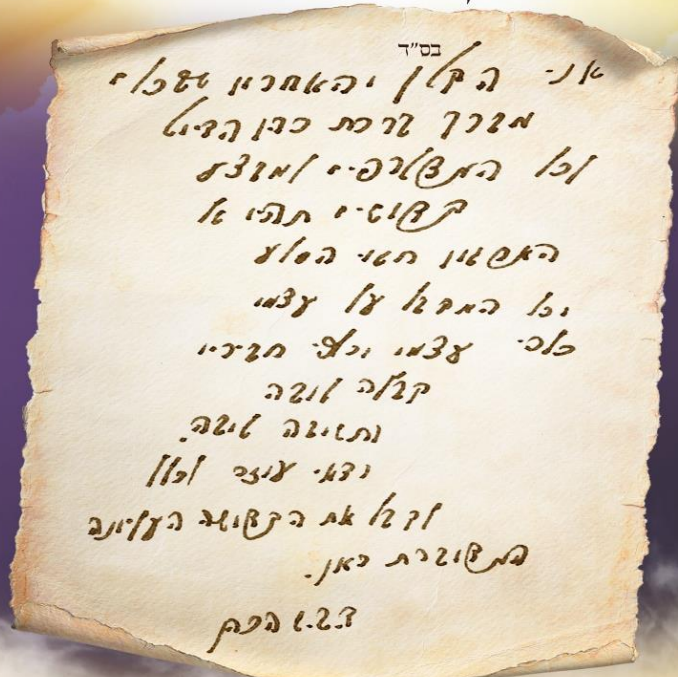 בס"ד
אני הקטן והאחרון
מברך ברכת כהן הדיוט
לכל המצטרפים למבצע
קדושים תהיו
הסלע
וכל המקבל על עצמו
כלפי עצמו וכלפי חבריו
קבלה טובה
ותשובה טובה.
ודאי עוזר לכלל
לקבל את הקדושה העליונה
המדוברת כאן.
הכהן